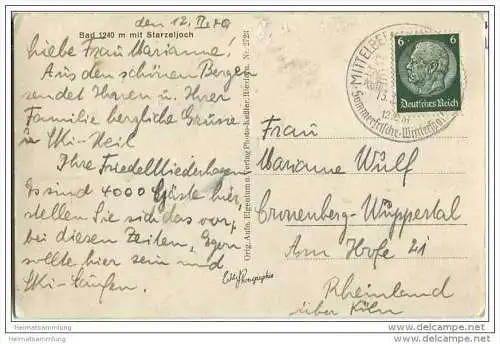 den 12. II. 40
Bad 1240 m mit Starzeljoch
Liebe Frau Marianne!
Aus den schönen Bergen
sendet Ihnen u. Ihrer
Familie herzliche Grüsse
u. Ski-Heil
Ihre Friedel
Es sind 4000 Gäste hier,
stellen Sie sich das vor,
bei diesen Zeiten, Egon
sollte hier sein und
Ski-laufen.
Orig. Aufn. Eigentum u. Verlag Photo-Keßler, Riezlern. Nr. 2723
Echte Photographie
MITTELBERG
Sommerfrische-Wintersport
6 6
Deutsches Reich
Frau
Marianne Wulf
Cronenberg-Wuppertal
Am Hofe 21
Rheinland
über Köln
Heimatsammlung
Heimatsammlung.de